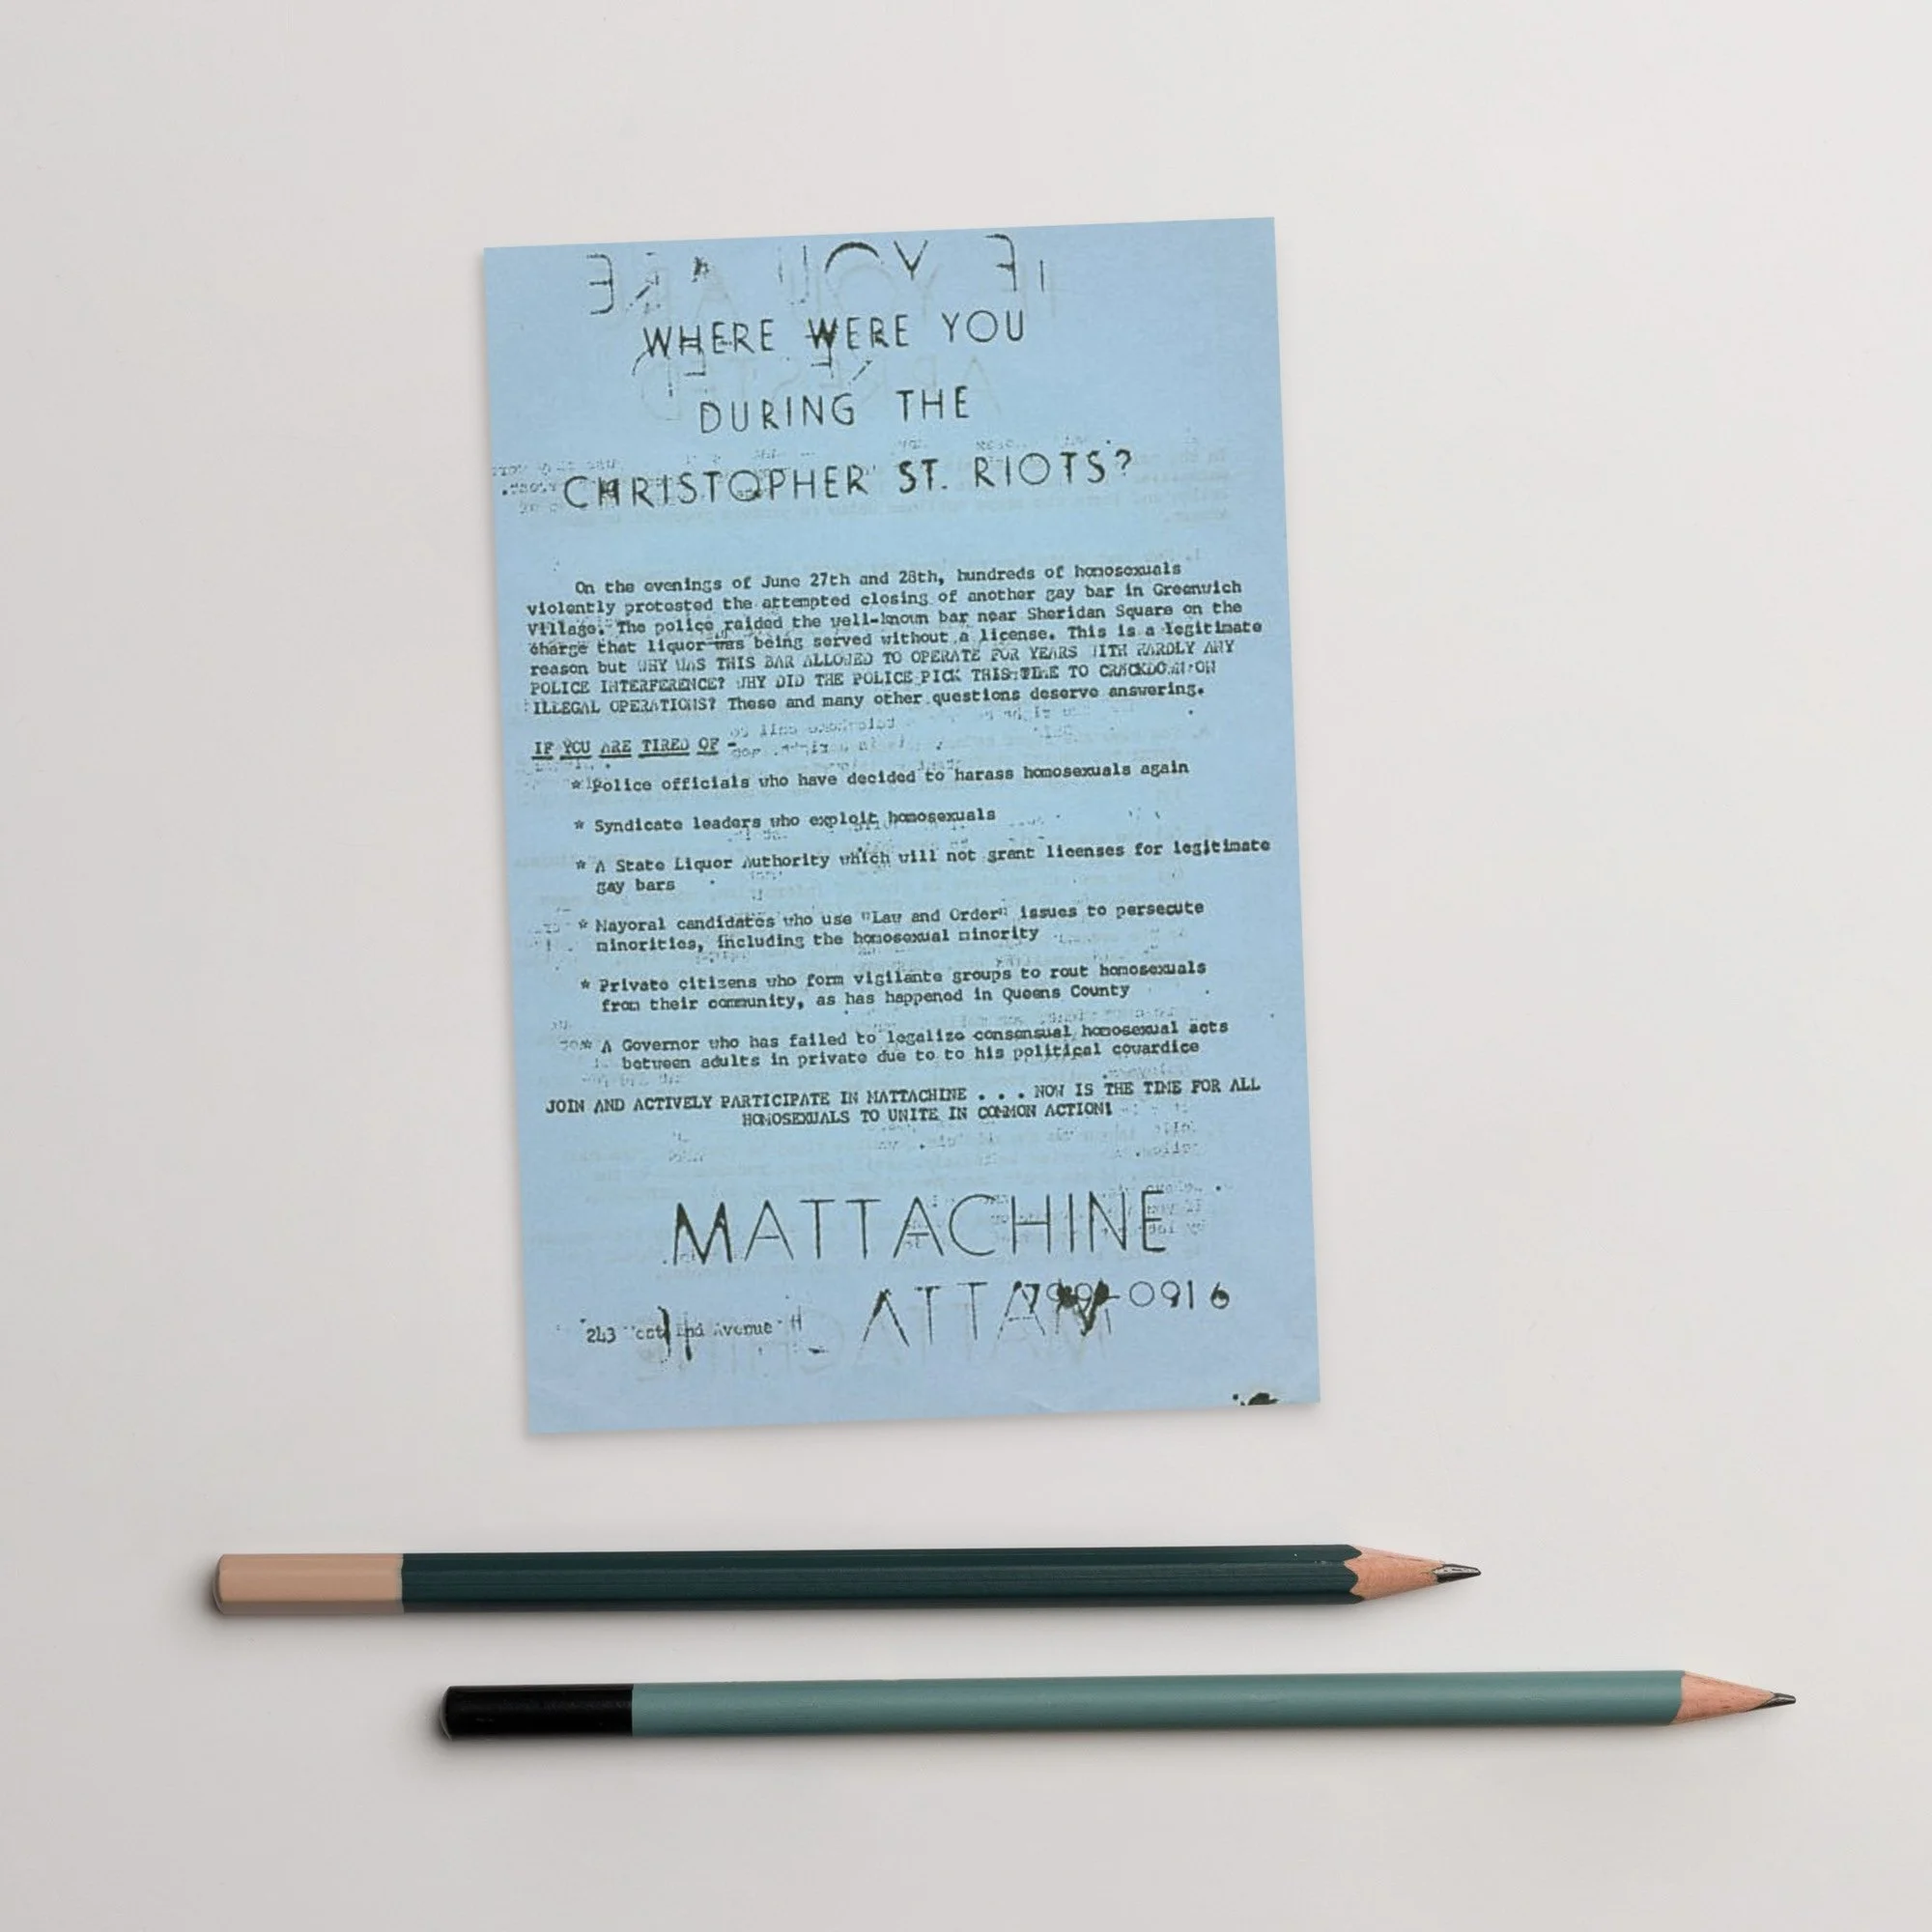 WHERE WERE YOU
DURING THE
CHRISTOPHER ST. RIOTS?
On the evenings of June 27th and 28th, hundreds of homosexuals
violently protested the attempted closing of another gay bar in Greenwich
Village. The police raided the well-known bar near Sheridan Square on the
charge that liquor was being served without a license. This is a legitimate
reason but WHY WAS THIS BAR ALLOWED TO OPERATE FOR YEARS WITH HARDLY ANY
POLICE INTERFERENCE? WHY DID THE POLICE PICK THIS TIME TO CRACKDOWN ON
ILLEGAL OPERATIONS? These and many other questions deserve answering.
IF YOU ARE TIRED OF -
* Police officials who have decided to harass homosexuals again
* Syndicate leaders who exploit homosexuals
* A State Liquor Authority which will not grant licenses for legitimate
gay bars
* Mayoral candidates who use "Law and Order" issues to persecute
minorities, including the homosexual minority
* Private citizens who form vigilante groups to rout homosexuals
from their community, as has happened in Queens County
* A Governor who has failed to legalize consensual homosexual acts
between adults in private due to to his political cowardice
JOIN AND ACTIVELY PARTICIPATE IN MATTACHINE . . . NOW IS THE TIME FOR ALL
HOMOSEXUALS TO UNITE IN COMMON ACTION!
MATTACHINE
243 West End Avenue